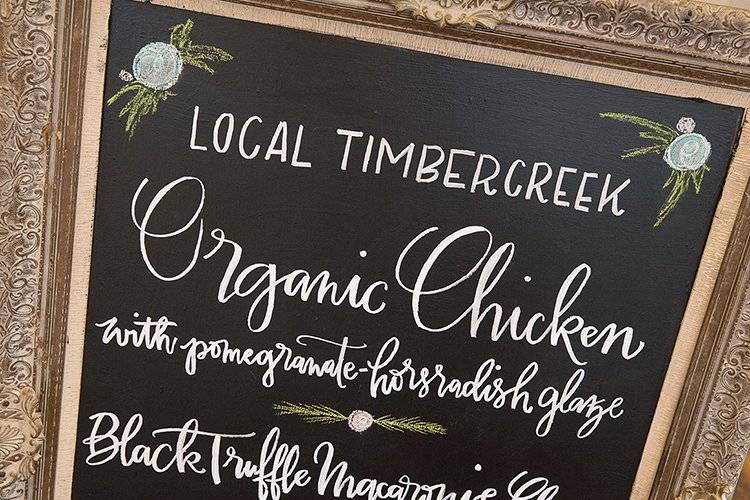 LOCAL TIMBERCREEK
Organic Chicken
with pomegranate-horsradish glaze
Black Truffle Macaronie